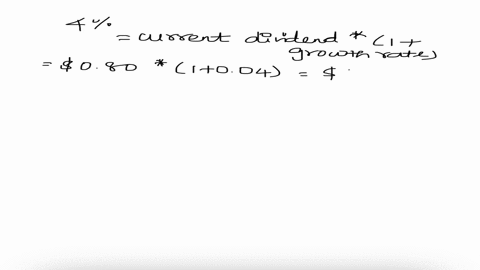 4%
= current dividend * (1+
growth rate)
= $0.80 * (1+0.04) = $.